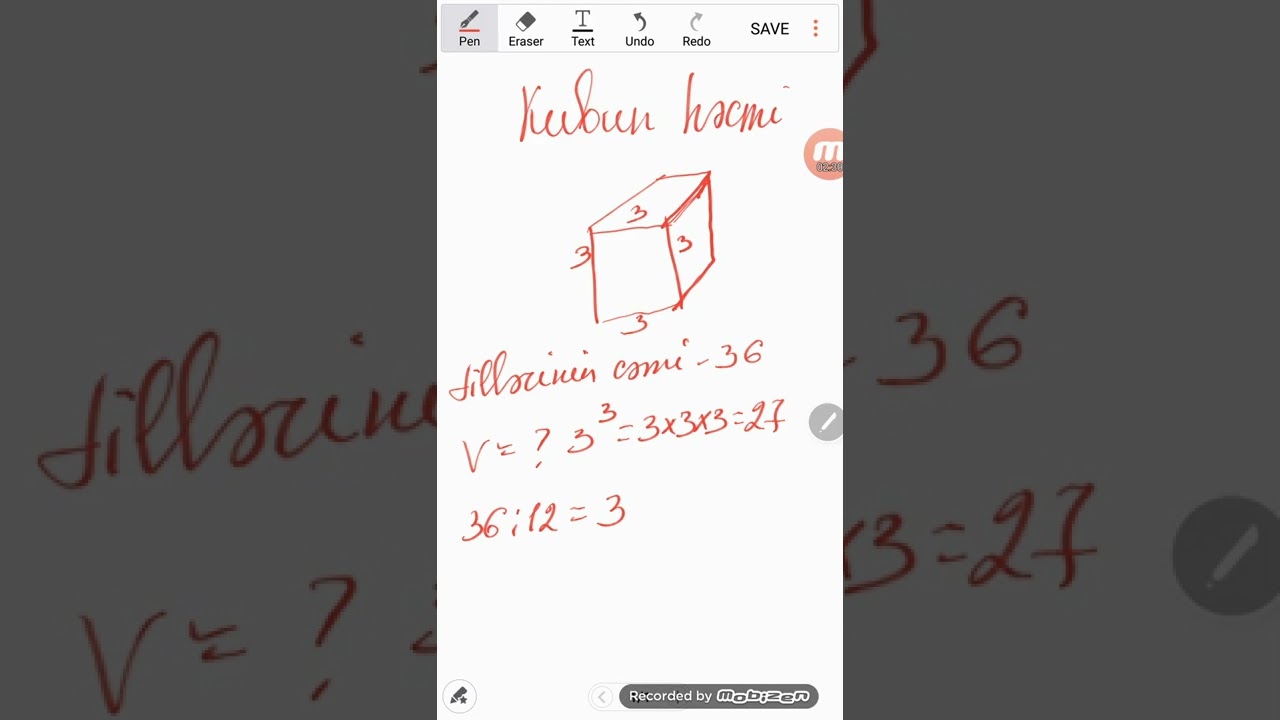 Pen Eraser Text Undo Redo SAVE
Kubun həcmi
02:30
3
3
3
3
tillərinin cəmi - 36
V = ? 3³ = 3×3×3 = 27
36 : 12 = 3
Recorded by MOBIZEN